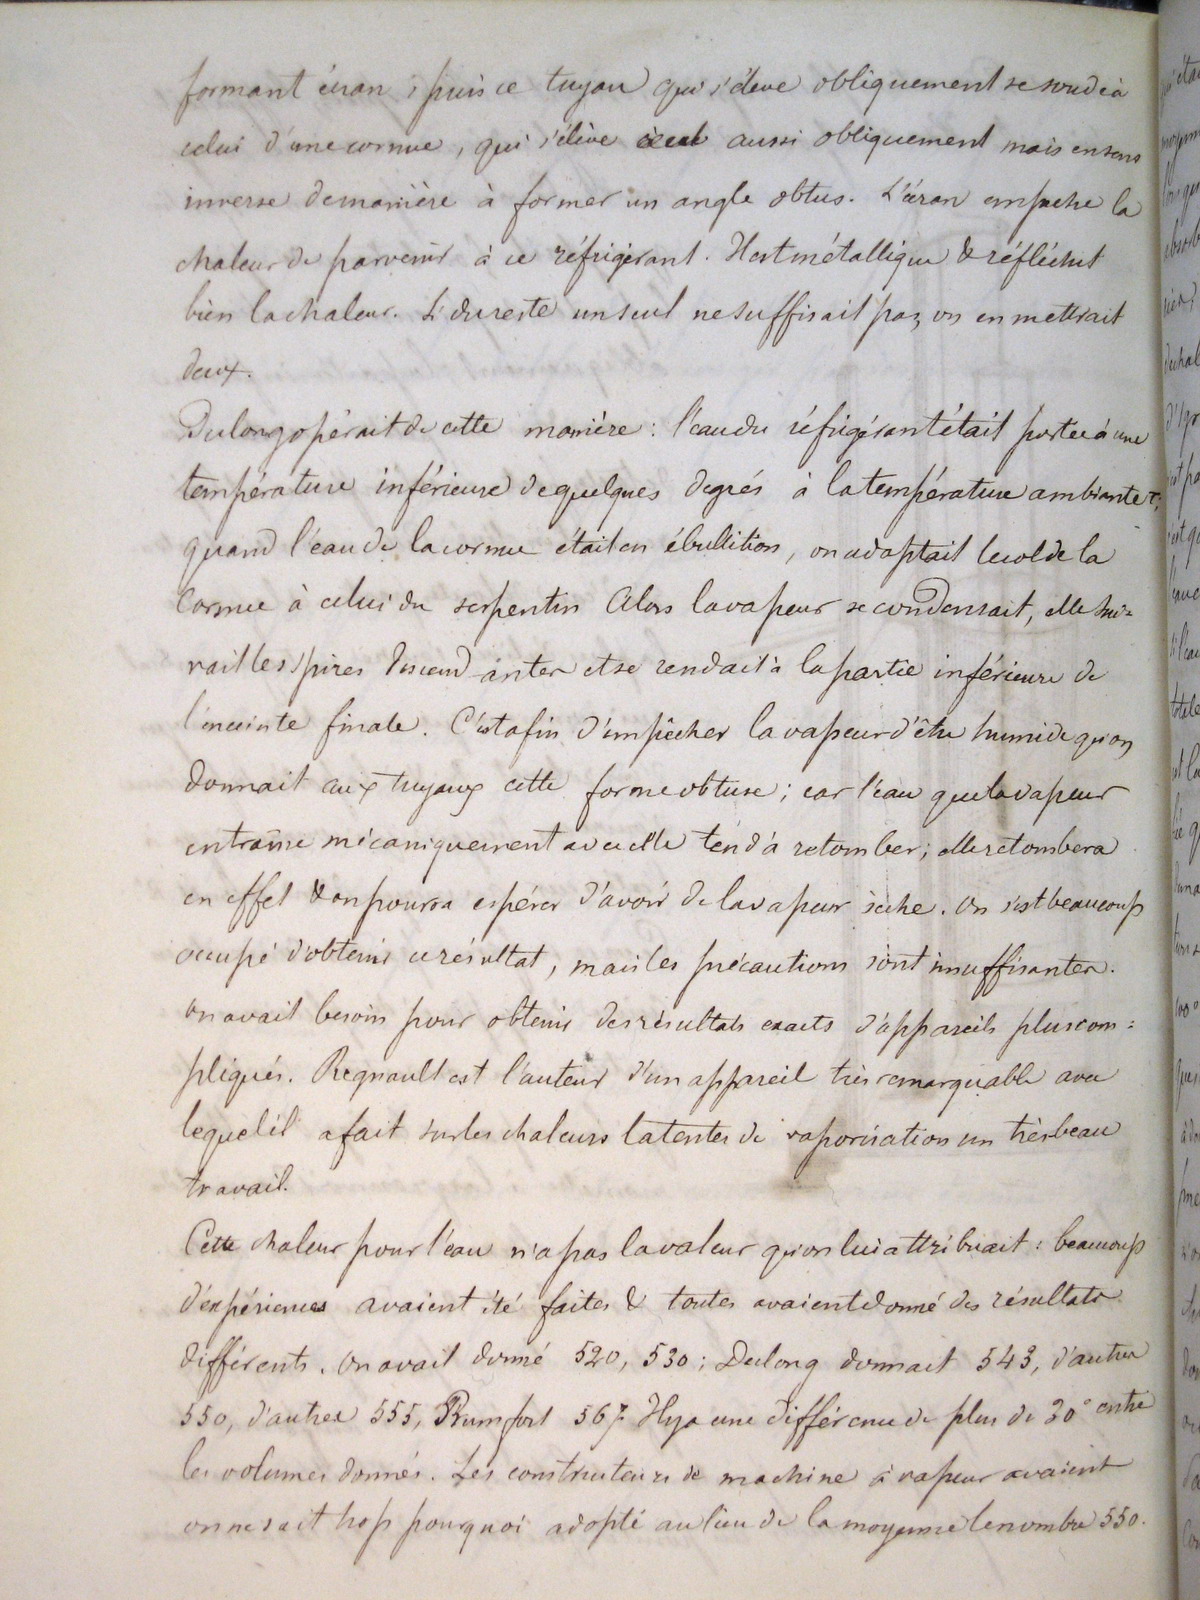 formant écran ; puis ce tuyau qui s'élève obliquement se soude à
celui d'une cornue, qui s'élève aussi obliquement mais en sens
inverse de manière à former un angle obtus. L'écran empêche la
chaleur de parvenir à ce réfrigérant. Il est métallique & réfléchit
bien la chaleur. Si du reste un seul ne suffisait pas, on en mettrait
deux.
Dulong opérait de cette manière : l'eau du réfrigérant était portée à une
température inférieure de quelques degrés à la température ambiante
quand l'eau de la cornue était en ébullition, on adaptait le col de la
Cornue à celui du serpentin Alors la vapeur se condensait, elle sui=
vait les spires descendantes et se rendait à la partie inférieure de
l'enceinte finale. C'est afin d'empêcher la vapeur d'être humide qu'on
donnait aux tuyaux cette forme obtuse ; car l'eau que la vapeur
entraîne mécaniquement avec elle tend à retomber ; elle retombera
en effet & on pourra espérer d'avoir de la vapeur sèche. On s'est beaucoup
occupé d'obtenir ce résultat, mais les précautions sont insuffisantes.
On avait besoin pour obtenir des résultats exacts d'appareils plus com=
pliqués. Regnault est l'auteur d'un appareil très remarquable avec
lequel il a fait sur les chaleurs latentes de vaporisation un très beau
travail.
Cette chaleur pour l'eau n'a pas la valeur qu'on lui attribuait : beaucoup
d'expériences avaient été faites & toutes avaient donné des résultats
différents. On avait donné 520, 530 ; Dulong donnait 543, d'autres
550, d'autres 555, Rumfort 567. Il y a une différence de plus de 30° entre
les volumes donnés. Les constructeurs de machine à vapeur avaient
on ne sait trop pourquoi adopté au lieu de la moyenne le nombre 550.